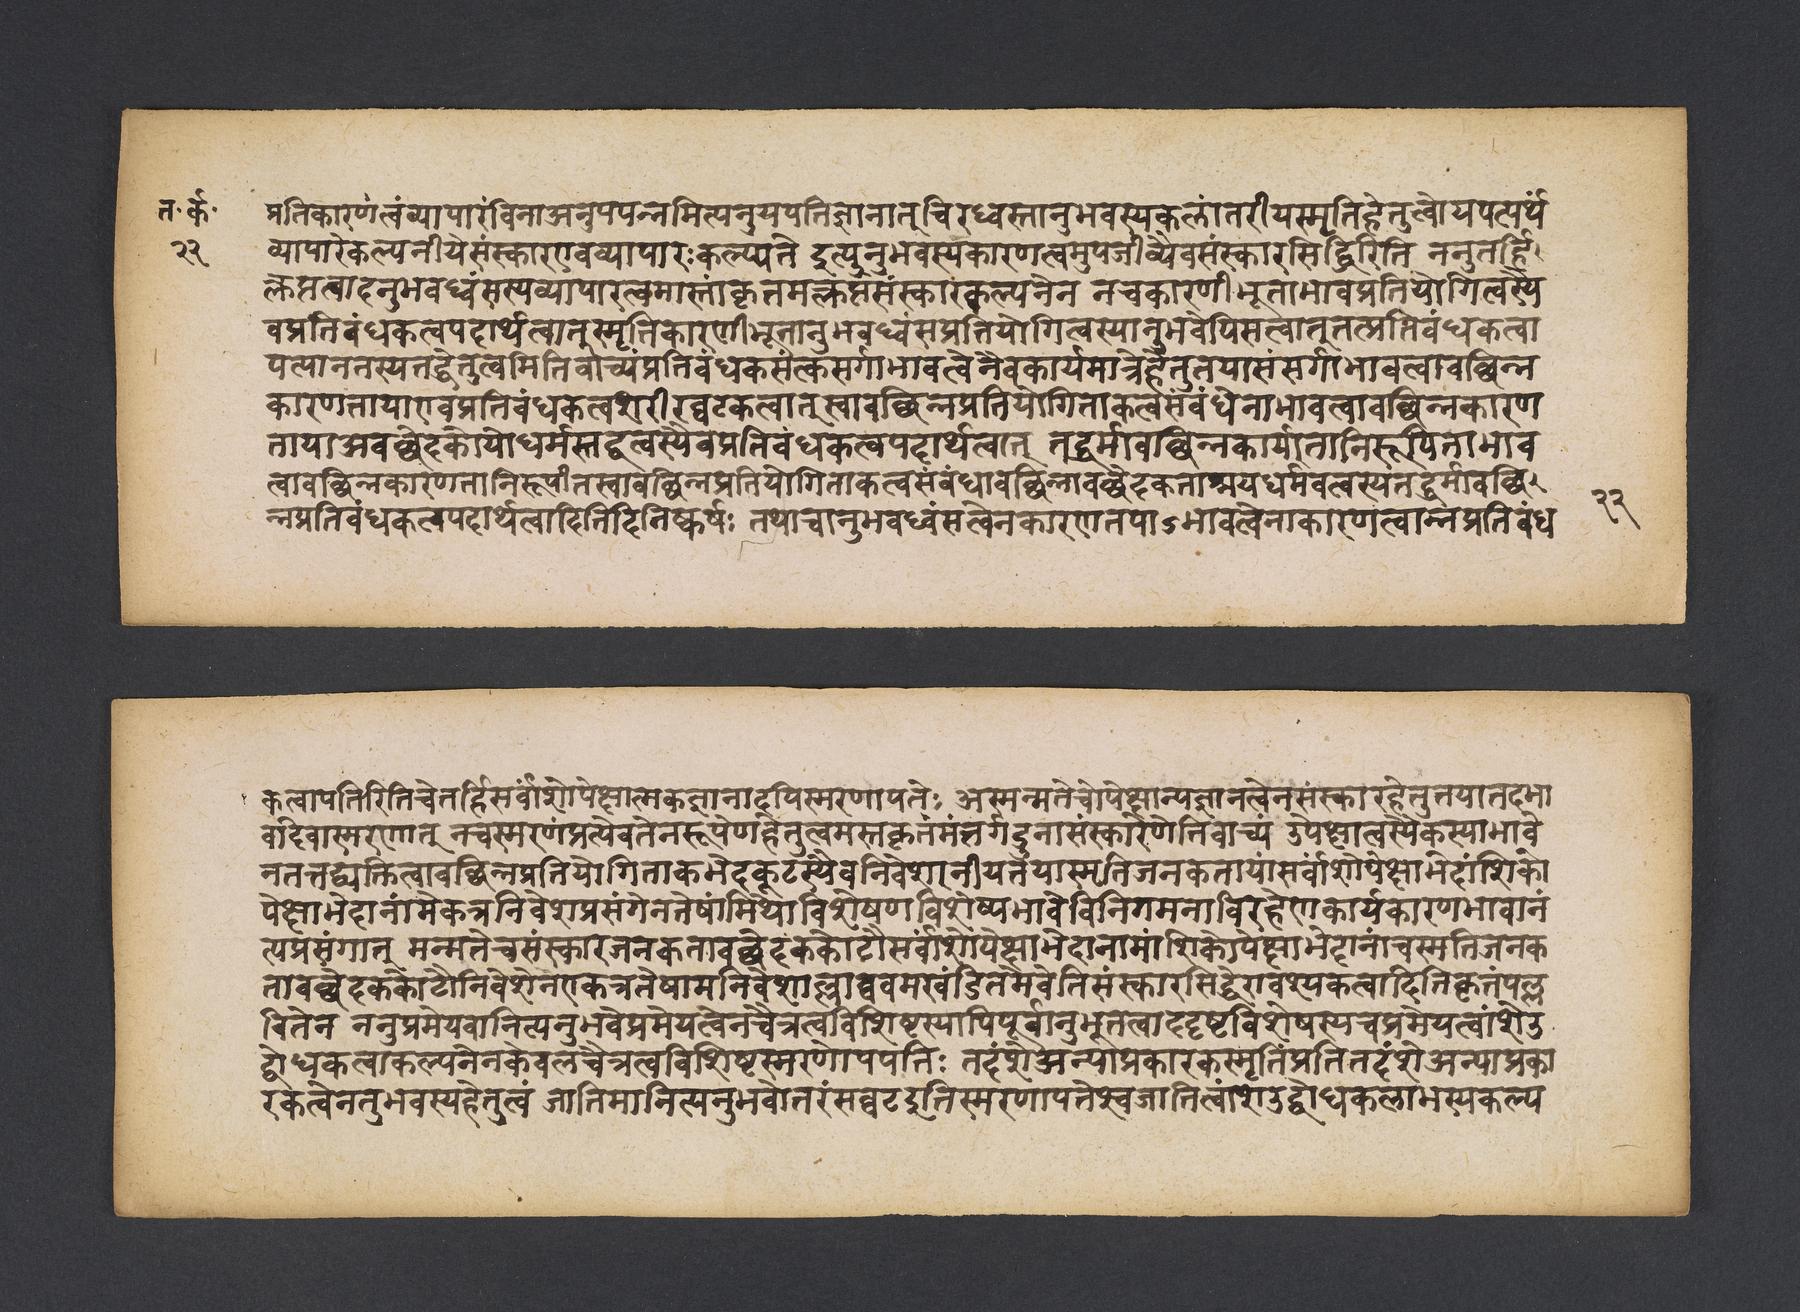 त॰र्क॰
२२
प्रतिकारणत्वंव्यापारंविनाअनुपपन्नमित्यनुयपत्तिज्ञानात्चिरध्वस्तानुभवस्यकलांतरीयस्मृतिहेतुत्वोयपत्यर्थं
व्यापारेकल्पनीयेसंस्कारएवव्यापारःकल्प्यते दुत्युनुभवस्यकारणत्वमुपजीव्यैवसंस्कारसिद्धिरिति ननुतर्हि
त्कप्तत्वादनुभवध्वंसस्यव्यापारत्वमास्तांकृतमत्कप्तसंस्कारकल्पनेन नचकारणीभूताभावप्रतियोगित्वस्यै
वप्रतिबंधकत्वपदार्थत्वात्स्मृतिकारणीभूतानुभवध्वंसप्रतियोगित्वस्यानुभवेपिसत्वात्तत्प्रतिवंधकत्वा
पत्यानतस्यतद्धेतुत्वमितिर्वाच्यंप्रतिवंधकसंत्कसर्गाभावत्वेनैवकार्यमात्रेहेतुतयासंसर्गाभावत्वावछिन्न
कारणतायाएवप्रतिवंधकत्वशरीरघटकत्वात्स्वावछिन्नप्रतियोगिताकत्वसंबंधेनाभावत्वावछिन्नकारण
तायाअवछेदकोयोधर्मस्तद्वत्वस्यैवप्रतिबंधकत्वपदार्थत्वात् तद्धर्मावछिन्नकार्यातानिरूपिताभाव
त्वावछिन्नकारणतानिरूपीतस्वावछिन्नप्रतियोगिताकत्वसंबंधावछिन्नावछेदकताश्रयधर्मवत्वस्यतद्धर्मावछि
न्नप्रतिवंधकत्वपदार्थत्वादितिदितिष्कर्षः तथाचानुभवध्वंसत्वेनकारणतपाऽभावत्वेनाकारणत्वान्नप्रतिबंध
२२
कत्वापतिरितिचेतर्हिसर्वांशोपेक्षात्मकज्ञानादपिस्मरणापतेः अस्मन्मतेचोपेक्षान्यज्ञानत्वेनसंस्कारहेतुतयातदभा
वदिवास्मरणात् नचस्मरणंप्रत्येवतेनरूपेणहेतुत्वमस्तकृतंमंतर्गदुनासंस्कारेणेतिवाच्यं उपेक्षात्वस्यैकस्याभावे
नतत्तद्व्यक्तित्वावछिन्नप्रतियोगिताकभेदकूटस्यैवनिवेशनीयतयास्मृतिजनकतायांसर्वांशोपेक्षाभेदांशिको
पेक्षाभेदानांमेकत्रनिवेशप्रसंगेनतेषांमिथोविशेषणविशेष्यभावेविनिगमनाविरहेणकार्यकारणभावानं
त्यप्रसंगात् मन्मतेचसंस्कारजनकतावछेदककोटौसर्वांशोपेक्षाभेदानामांशिकोपेक्षाभेदानांचस्मतिजनक
तावछेदककोटौनिवेशेनेएकत्रतेषामनिवेशाल्लाघवमखंडितमेवेतिसंस्कारसिद्धेरावश्यकत्वादितिकृतंपल्ल
वितेन ननुप्रमेयवानित्यनुभवेप्रमेयत्वेनचैत्रत्वविशिष्टस्यापिपूर्वानुभूतत्वाददृष्टविशेषस्यचप्रमेयत्वांशेउ
द्बोधकत्वाकल्पनेनकेवलचैत्रत्वविशिष्टस्मरणोपपतिः तदंशेअन्याप्रकारकस्मृतिंप्रतितदंशेअन्याप्रका
रकत्वेनतुभवस्यहेतुत्वं जातिमानित्यनुभवोतरंसघटदुतिस्मरणापतेश्चजातित्वांशेउद्बोधकत्वाभस्यकल्प